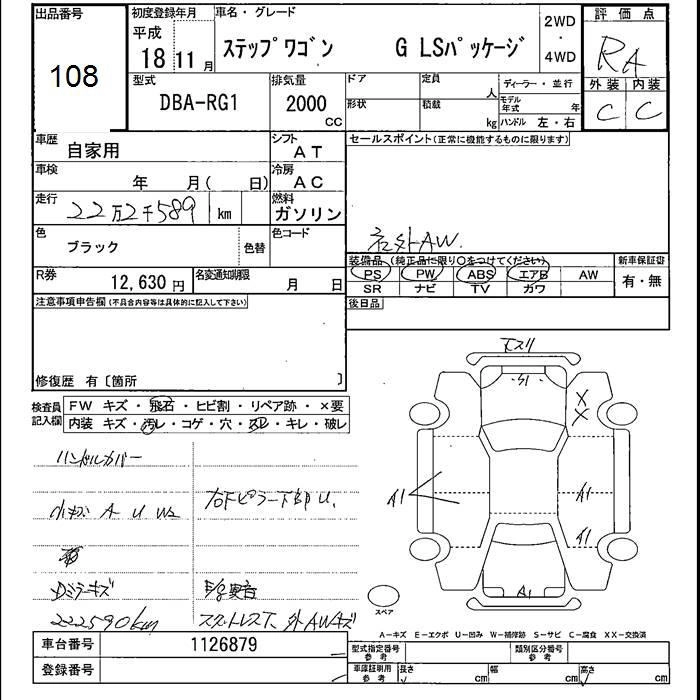 出品番号 初度登録年月 車名・グレード 2WD・4WD 評価点
108 平成18 11月 ステップワゴン G LSパッケージ RA
型式 DBA-RG1 排気量 2000cc
ドア 定員 人 ディーラー・並行
形状 積載 kg モデル年式 年 ハンドル 左・右
外装 内装
C C
車歴 自家用 シフト AT
セールスポイント(正常に機能するものに限ります)
車検 年 月( 日) 冷房 AC
走行 22万2千589 km 燃料 ガソリン
社外AW.
色 ブラック 色替 色コード
装備品 (純正品に限り○をつけてください) 新車保証書
PS PW ABS エアB AW 有・無
SR ナビ TV カワ
R券 12,630円 名変通知期限 月 日
後日品
注意事項申告欄(不具合内容等は具体的に記入して下さい)
修復歴 有〔箇所 〕
検査員記入欄
FW キズ・飛石・ヒビ割・リペア跡・×要
内装 キズ・汚レ・コゲ・穴・スレ・キレ・破レ
下スリ
S1
X
X
A1
A1
A1
A1
スペア
ハンドルカバー
小キズ A U W2
右下ピラー下部U.
Dミラーキズ
222590km
スタットレス下. 外AWキズ
A−キズ E−エクボ U−凹み W−補修跡 S−サビ C−腐食 XX−交換済
車台番号 1126879
登録番号
型式指定番号 参考 類別区分番号 参考
車庫証明用 参考 長さ cm 幅 cm 高さ cm